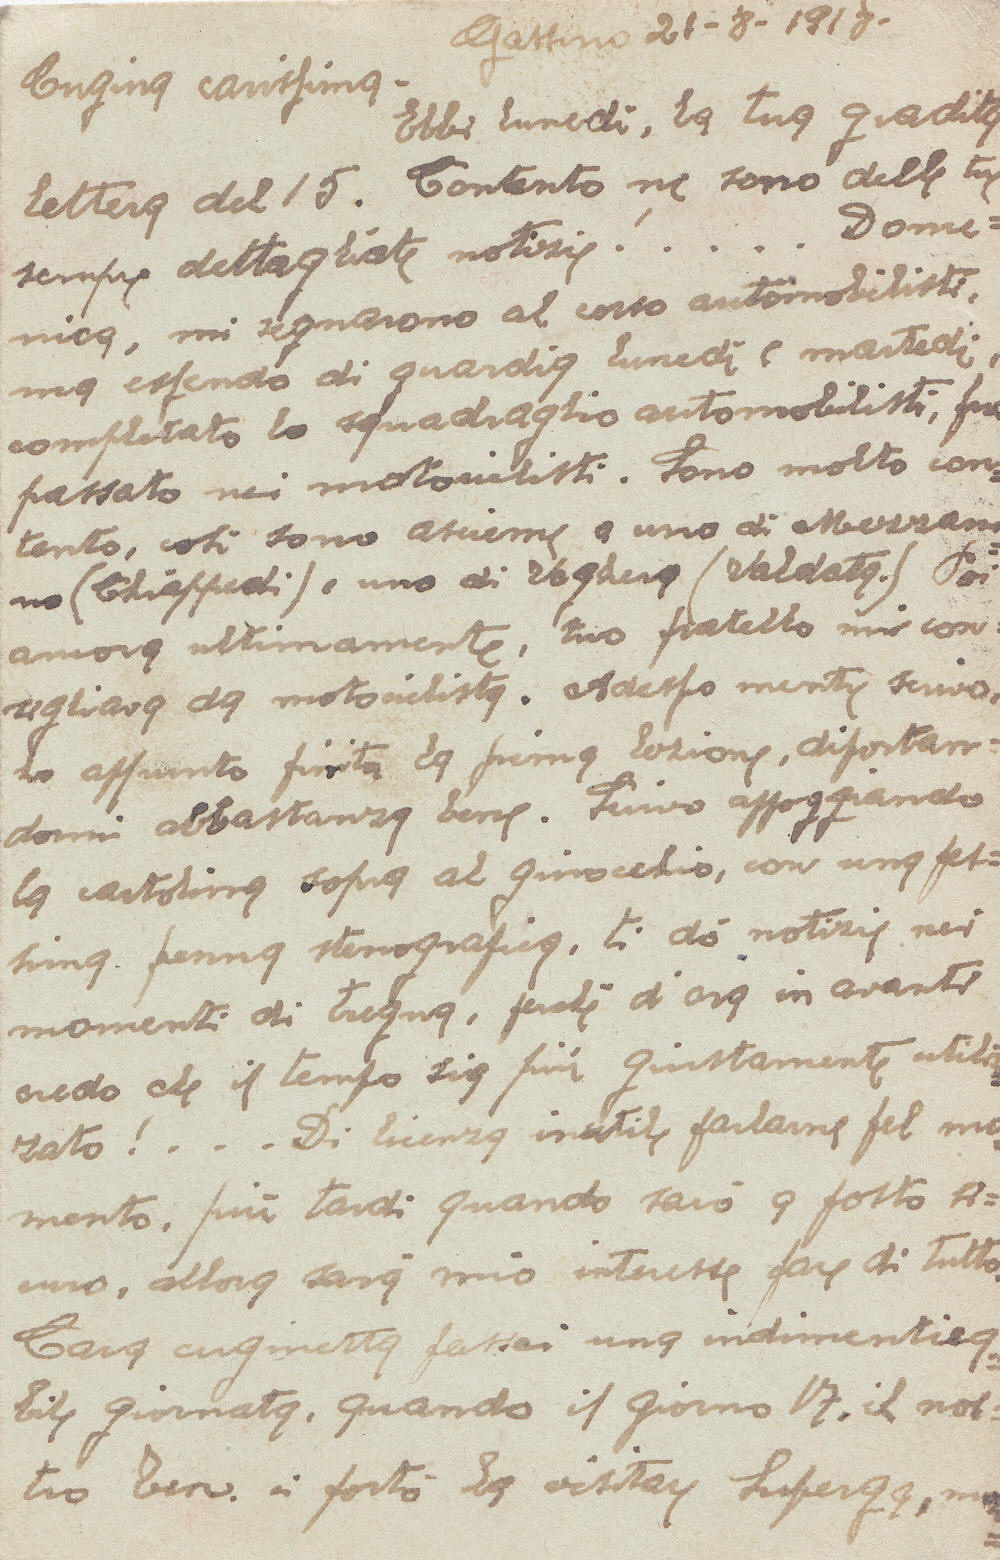 Gassino 21-8-1918-
Cugina carissima-
Ebbi lunedì, la tua gradita
lettera del 15. Contento ne sono delle tue
sempre dettagliate notizie! . . . . . Dome=
nica, mi segnarono al corso automobilisti,
ma essendo di guardia lunedì e martedì,
completato lo squadraglio automobilisti, fui
passato nei motociclisti. Sono molto con=
tento, così sono assieme a uno di Mezzani=
no (Chiappedi), e uno di Voghera (Valdata.) Poi
ancora ultimamente, tuo fratello mi con=
sigliava da motociclista. Adesso mentre scrivo,
ho appunto finita la prima lezione, diportan=
domi abbastanza bene. Scrivo appoggiando
la cartolina sopra al ginocchio, con una pes=
sima penna stenografica, ti dò notizie nei
momenti di tregua, perchè d'ora in avanti
credo che il tempo sia più giustamente utiliz=
zato! . . . . Di licenza inutile parlarne pel mo
mento, più tardi quando sarò a posto si=
curo, allora sarà mio interesse fare di tutto.
Cara cuginetta passai una indimentica=
bile giornata, quando il giorno 17, il nos=
tro Ten. ci portò la visitare Superga,